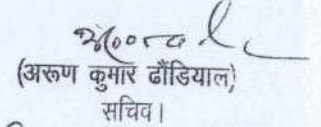 (अरूण कुमार ढौंडियाल)
सचिव।